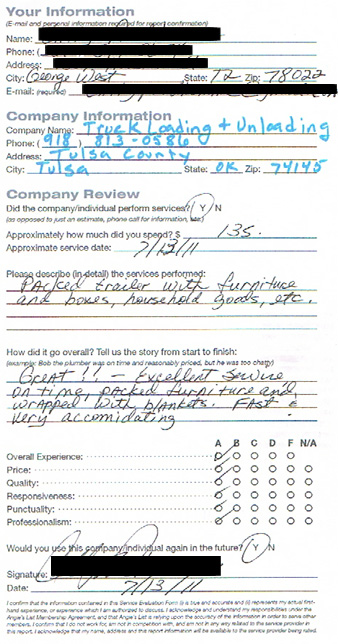 Your Information
(E-mail and personal information required for report confirmation)
Name:
Phone: (
Address:
City: George West State: TX Zip: 78022
E-mail: (required)
Company Information
Company Name: Truck Loading + Unloading
Phone: (918) 813-0586
Address: Tulsa County
City: Tulsa State: OK Zip: 74145
Company Review
Did the company/individual perform services? Y N
(as opposed to just an estimate, phone call for information, etc.)
Approximately how much did you spend? $ 135.
Approximate service date: 7/13/11
Please describe (in detail) the services performed:
PAcked trailer with furniture
and boxes, household goods, etc.
How did it go overall? Tell us the story from start to finish:
(example: Bob the plumber was on time and reasonably priced, but he was too chatty)
Great!! - Excellent Service
on time, packed furniture and
wrapped with blankets. FAst &
very accomidating
A B C D F N/A
Overall Experience:
Price:
Quality:
Responsiveness:
Punctuality:
Professionalism:
Would you use this company/individual again in the future? Y N
Signature:
Date: 7/13/11
I confirm that the information contained in this Service Evaluation Form (i) is true and accurate and (ii) represents my actual first-
hand experience, or experience which I am authorized to discuss. I acknowledge and understand my responsibilities under the
Angie's List Membership Agreement, and that Angie's List is relying upon the accuracy of the information in order to serve other
members. I confirm that I do not work for, am not in competition with, and am not in any way related to the service provider in
this report. I acknowledge that my name, address and this report information will be available to the service provider being rated.